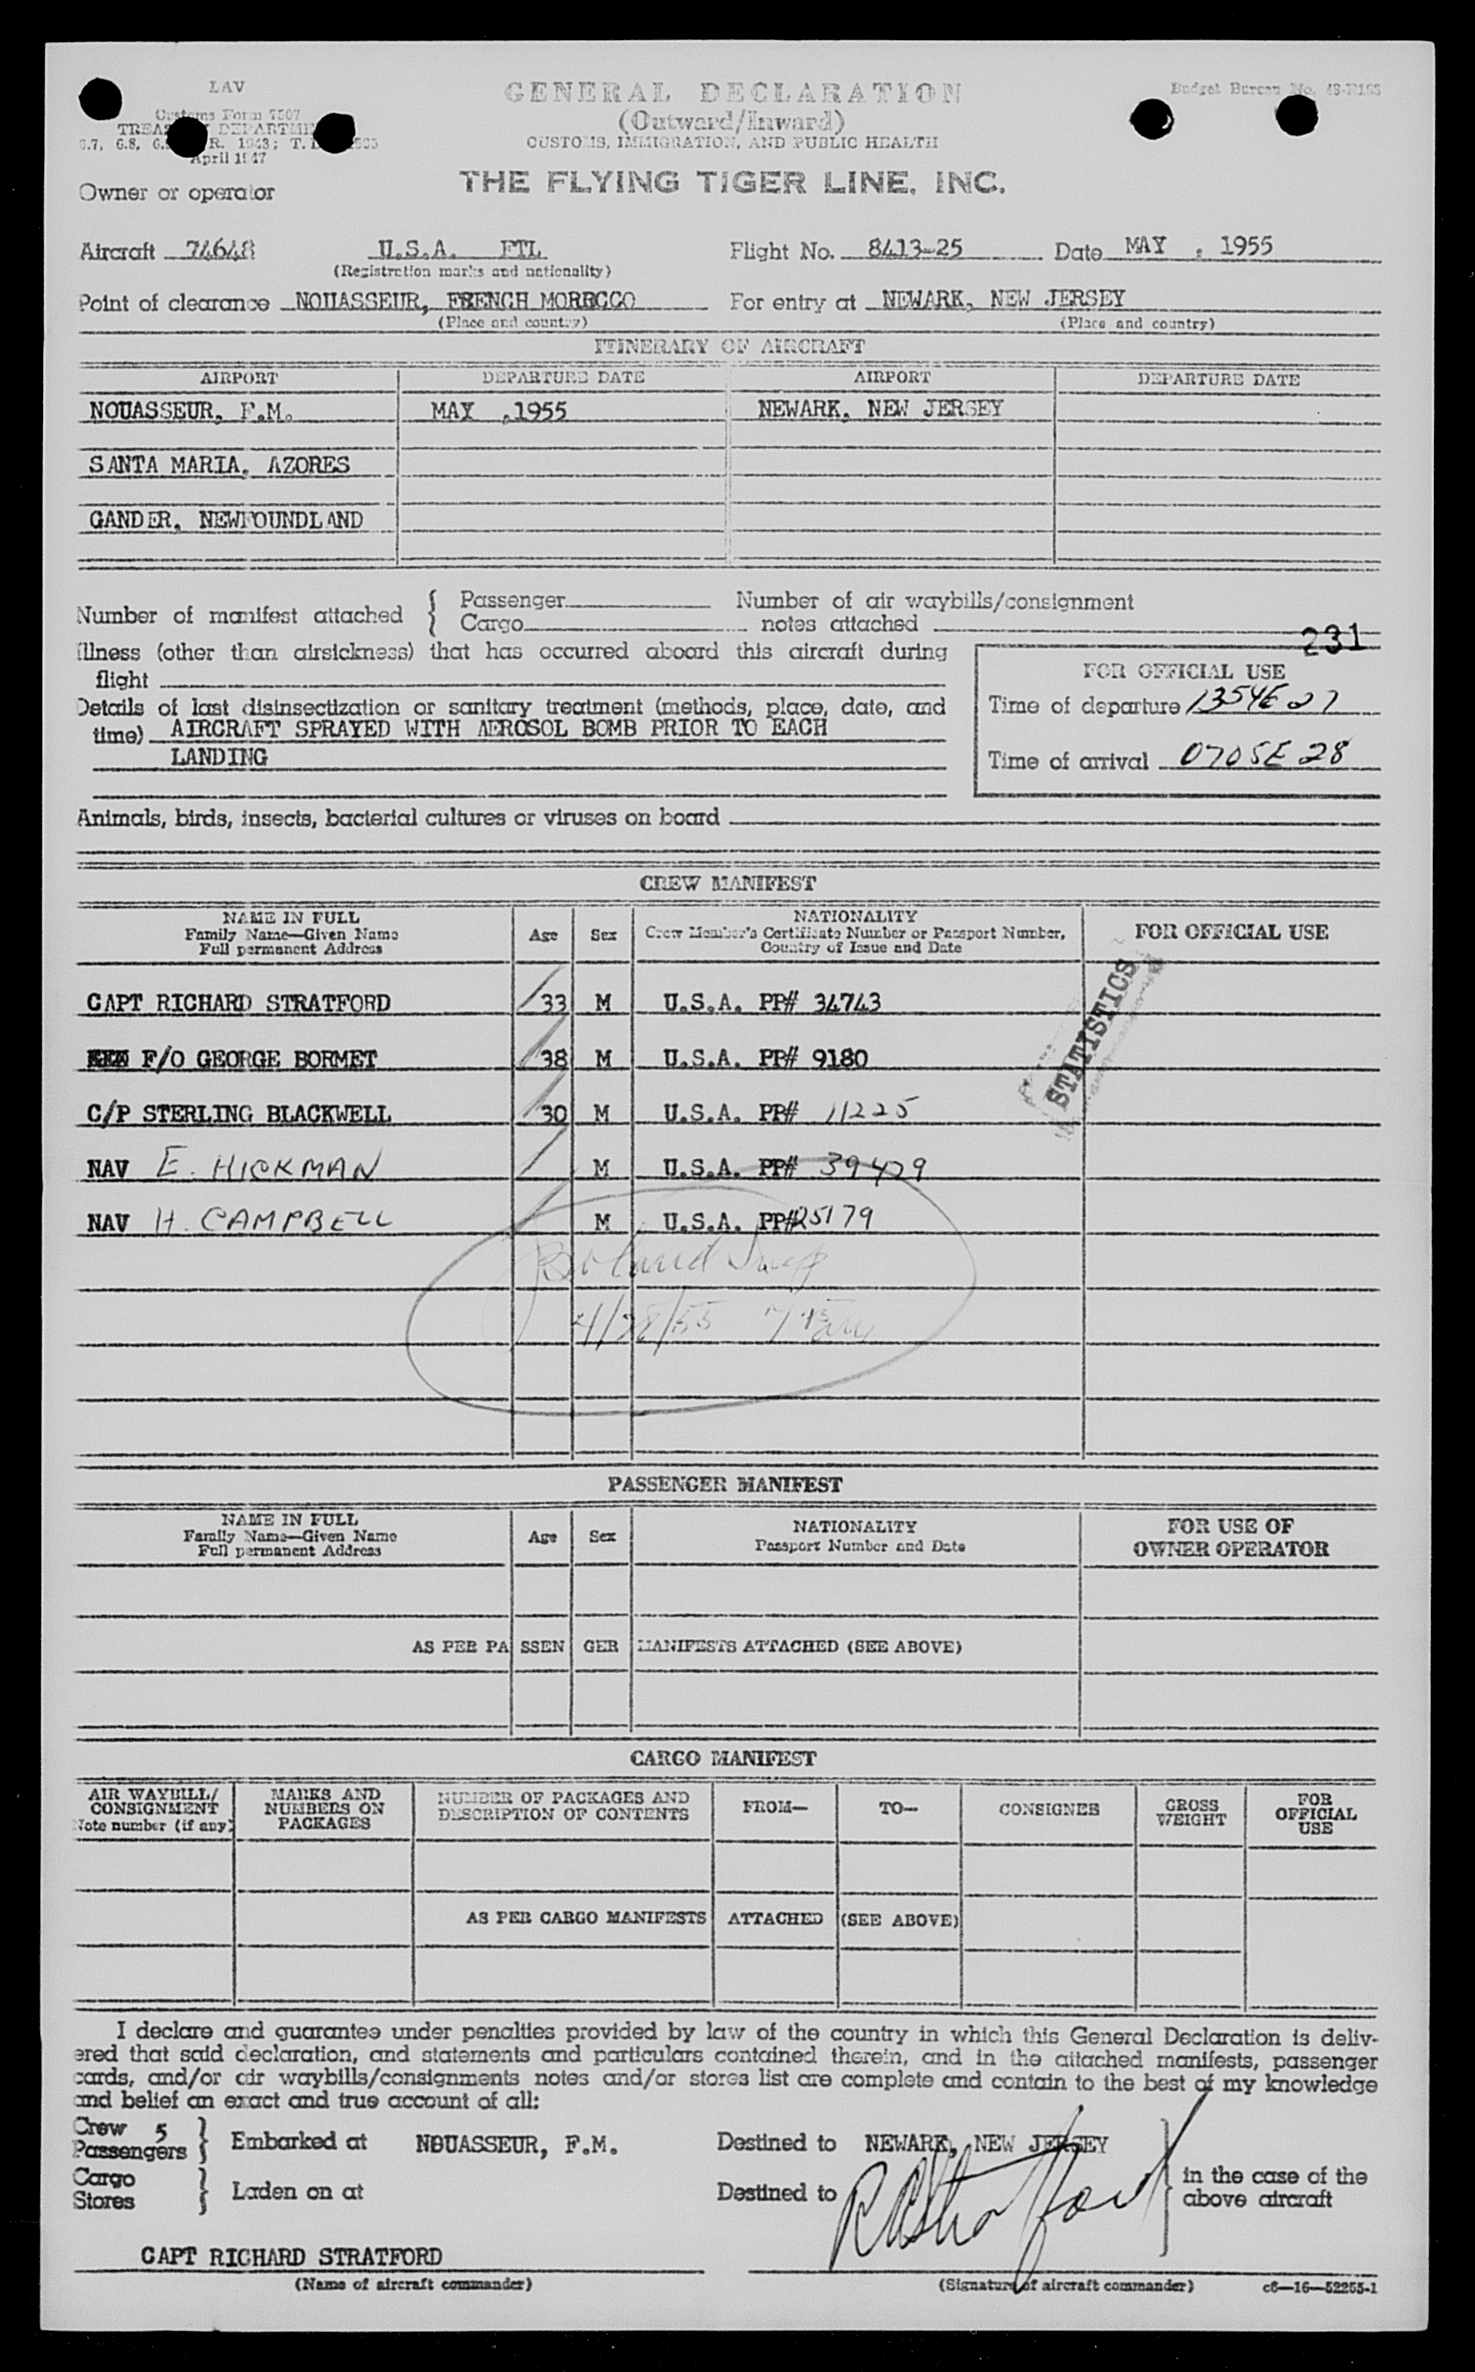 LAV
GENERAL DECLARATION
Budget Bureau No. 48-R165
Customs Form 7507
(Outward/Inward)
TREASURY DEPARTMENT
CUSTOMS, IMMIGRATION, AND PUBLIC HEALTH
April 1947
Owner or operator THE FLYING TIGER LINE, INC.
Aircraft 74648 U.S.A. FTL Flight No. 8413-25 Date MAY , 1955
(Registration marks and nationality)
Point of clearance NOUASSEUR, FRENCH MOROCCO For entry at NEWARK, NEW JERSEY
(Place and country) (Place and country)
ITINERARY OF AIRCRAFT
AIRPORT DEPARTURE DATE AIRPORT DEPARTURE DATE
NOUASSEUR, F.M. MAY ,1955 NEWARK, NEW JERSEY
SANTA MARIA, AZORES
GANDER, NEWFOUNDLAND
Number of manifest attached { Passenger Number of air waybills/consignment
Cargo notes attached
231
Illness (other than airsickness) that has occurred aboard this aircraft during
flight
FOR OFFICIAL USE
Time of departure 1354E 27
Time of arrival 0705E 28
Details of last disinsectization or sanitary treatment (methods, place, date, and
time) AIRCRAFT SPRAYED WITH AEROSOL BOMB PRIOR TO EACH
LANDING
Animals, birds, insects, bacterial cultures or viruses on board
CREW MANIFEST
NAME IN FULL
Family Name—Given Name
Full permanent Address
Age Sex
NATIONALITY
Crew Member's Certificate Number or Passport Number,
Country of Issue and Date
FOR OFFICIAL USE
STATISTICS
CAPT RICHARD STRATFORD 33 M U.S.A. PP# 34743
F/O GEORGE BORMET 38 M U.S.A. PP# 9180
C/P STERLING BLACKWELL 30 M U.S.A. PP# 11225
NAV E. HICKMAN M U.S.A. PP# 39479
NAV H. CAMPBELL M U.S.A. PP#25179
4/28/55
PASSENGER MANIFEST
NAME IN FULL
Family Name—Given Name
Full permanent Address
Age Sex
NATIONALITY
Passport Number and Date
FOR USE OF
OWNER OPERATOR
AS PER PASSENGER MANIFESTS ATTACHED (SEE ABOVE)
CARGO MANIFEST
AIR WAYBILL/
CONSIGNMENT
Note number (if any)
MARKS AND
NUMBERS ON
PACKAGES
NUMBER OF PACKAGES AND
DESCRIPTION OF CONTENTS
FROM— TO— CONSIGNEE
GROSS
WEIGHT
FOR
OFFICIAL
USE
AS PER CARGO MANIFESTS ATTACHED (SEE ABOVE)
I declare and guarantee under penalties provided by law of the country in which this General Declaration is deliv-
ered that said declaration, and statements and particulars contained therein, and in the attached manifests, passenger
cards, and/or air waybills/consignments notes and/or stores list are complete and contain to the best of my knowledge
and belief an exact and true account of all:
Crew 5
Passengers } Embarked at NOUASSEUR, F.M. Destined to NEWARK, NEW JERSEY
Cargo
Stores } Laden on at Destined to
in the case of the
above aircraft
R Stratford
CAPT RICHARD STRATFORD
(Name of aircraft commander) (Signature of aircraft commander) c6—16—52255-1